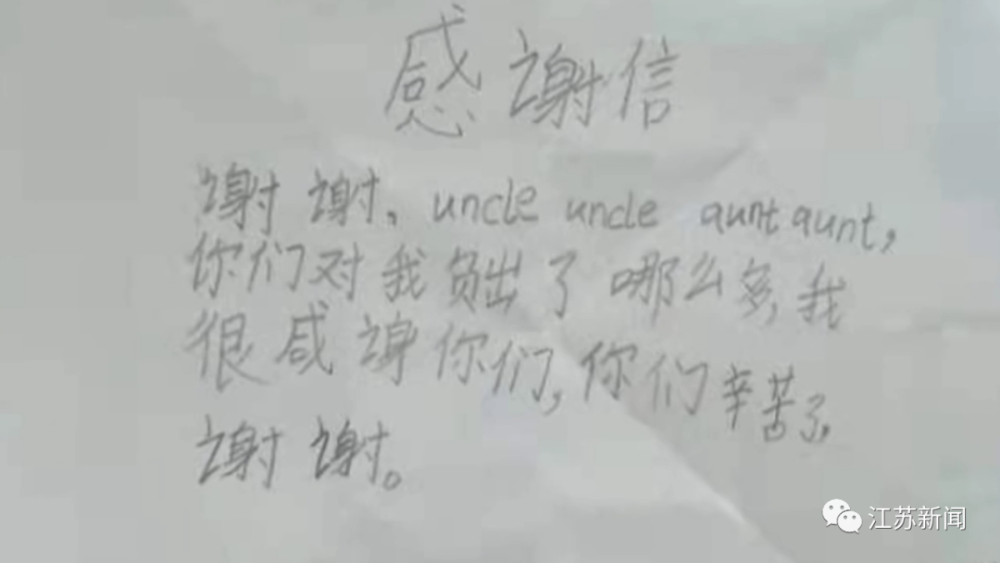 感谢信
谢谢、uncle uncle aunt aunt,
你们对我负出了哪么多,我
很感谢你们,你们辛苦了,
谢谢。
江苏新闻